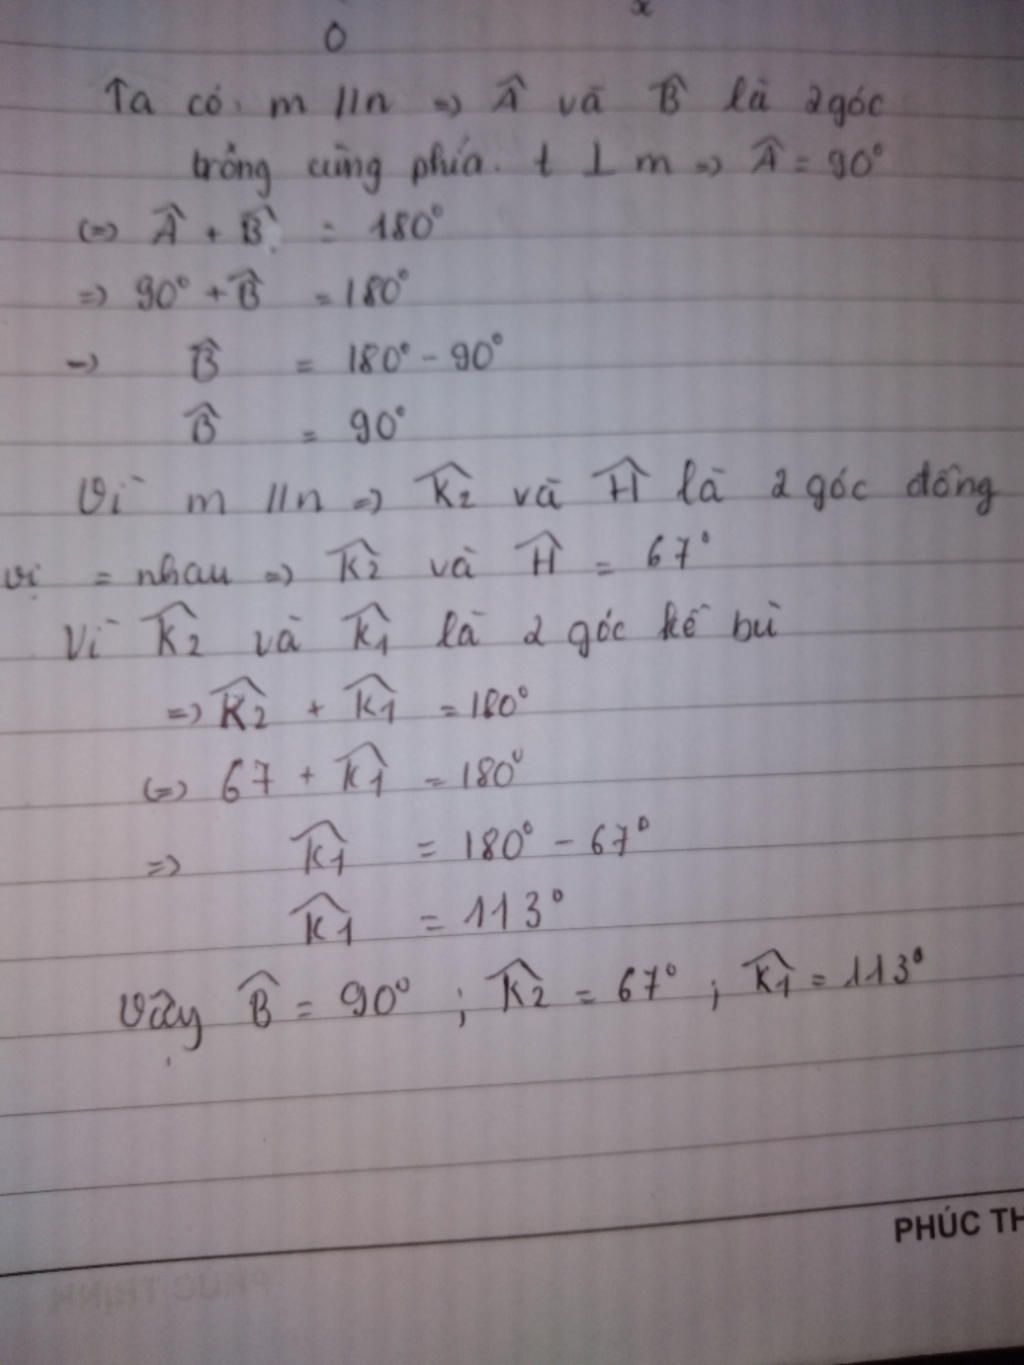 0 x
Ta có m // n => Â và B̂ là 2 góc
trông cùng phía. t ⊥ m => Â = 90°
(=) Â + B̂ = 180°
=> 90° + B̂ = 180°
-> B̂ = 180° - 90°
B̂ = 90°
Vì m // n => K̂2 và Ĥ là 2 góc đồng
vị = nhau => K̂2 và Ĥ = 67°
Vì K̂2 và K̂1 là 2 góc kề bù
=> K̂2 + K̂1 = 180°
(=) 67 + K̂1 = 180°
=> K̂1 = 180° - 67°
K̂1 = 113°
Vậy B̂ = 90° ; K̂2 = 67° ; K̂1 = 113°
PHÚC TH